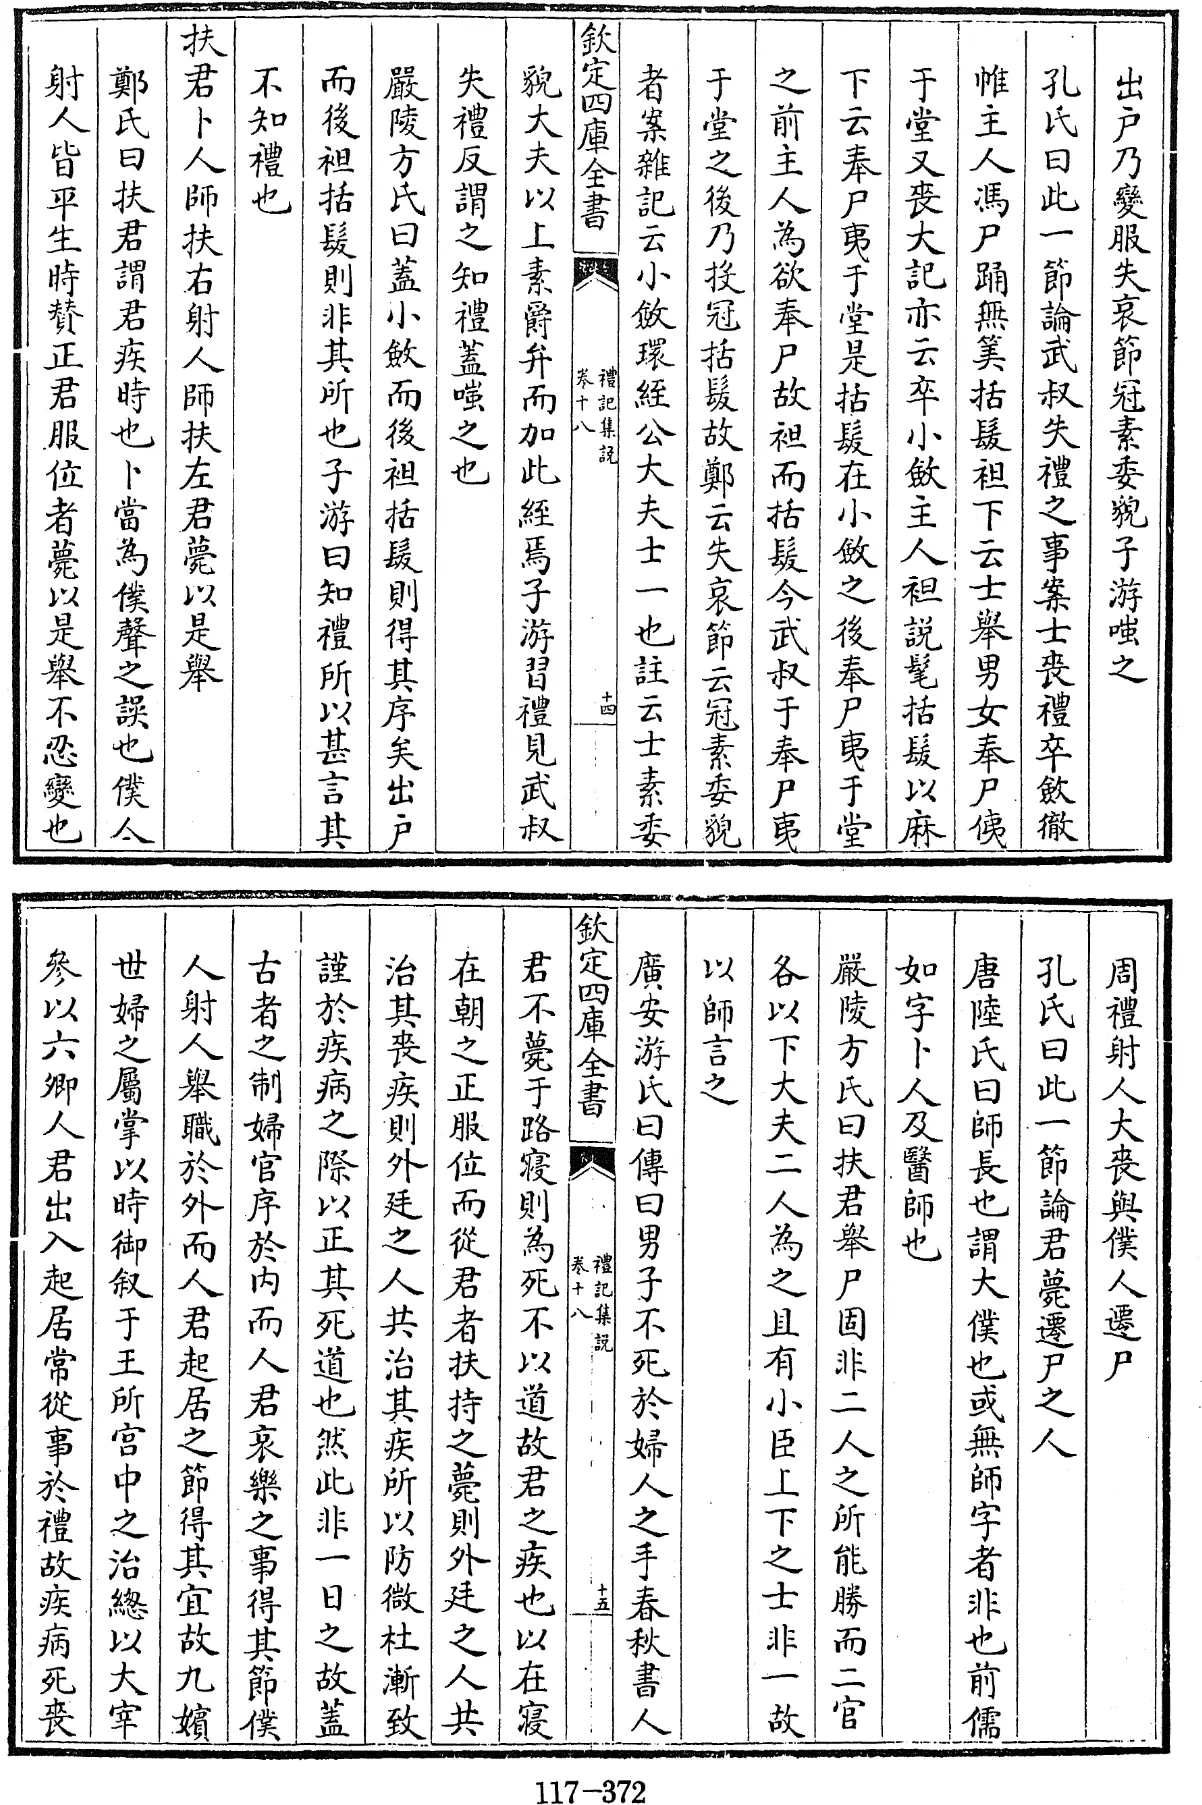 出戶乃變服失哀節冠素委貌子游嗤之
孔氏曰此一節論武叔失禮之事案士喪禮卒斂徹
帷主人馮尸踊無筭括髮袒下云士舉男女奉尸侇
于堂又喪大記亦云卒小斂主人袒説髦括髮以麻
下云奉尸夷于堂是括髮在小斂之後奉尸夷于堂
之前主人為欲奉尸故袒而括髮今武叔于奉尸夷
于堂之後乃投冠括髮故鄭云失哀節云冠素委貌
者案雜記云小斂環絰公大夫士一也註云士素委
欽定四庫全書
禮記集説
卷十八
十四
貌大夫以上素爵弁而加此絰焉子游習禮見武叔
失禮反謂之知禮蓋嗤之也
嚴陵方氏曰蓋小斂而後袒括髮則得其序矣出戶
而後袒括髮則非其所也子游曰知禮所以甚言其
不知禮也
扶君卜人師扶右射人師扶左君薨以是舉
鄭氏曰扶君謂君疾時也卜當為僕聲之誤也僕人
射人皆平生時贊正君服位者薨以是舉不忍變也
周禮射人大喪與僕人遷尸
孔氏曰此一節論君薨遷尸之人
唐陸氏曰師長也謂大僕也或無師字者非也前儒
如字卜人及醫師也
嚴陵方氏曰扶君舉尸固非二人之所能勝而二官
各以下大夫二人為之且有小臣上下之士非一故
以師言之
廣安游氏曰傳曰男子不死於婦人之手春秋書人
欽定四庫全書
禮記集説
卷十八
十五
君不薨于路寢則為死不以道故君之疾也以在寢
在朝之正服位而從君者扶持之薨則外廷之人共
治其喪疾則外廷之人共治其疾所以防微杜漸致
謹於疾病之際以正其死道也然此非一日之故蓋
古者之制婦官序於内而人君哀樂之事得其節僕
人射人舉職於外而人君起居之節得其宜故九嬪
世婦之屬掌以時御叙于王所宮中之治總以大宰
參以六卿人君出入起居常從事於禮故疾病死喪
117-372